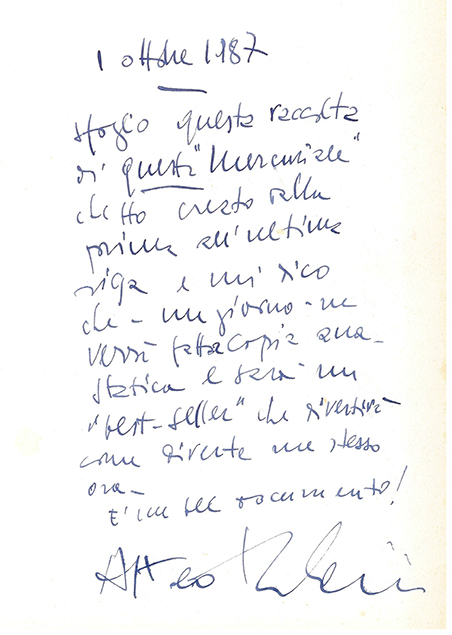 1 ottobre 1987
sfoglio questa raccolta
di questa "Mercuriale"
che ho creato dalla
prima all'ultima
riga e mi dico
che - un giorno - ne
verrà fatta copia ana-
statica e sarà un
"best-seller" che divertirà
come diverte me stesso
ora -
E' un bel documento!